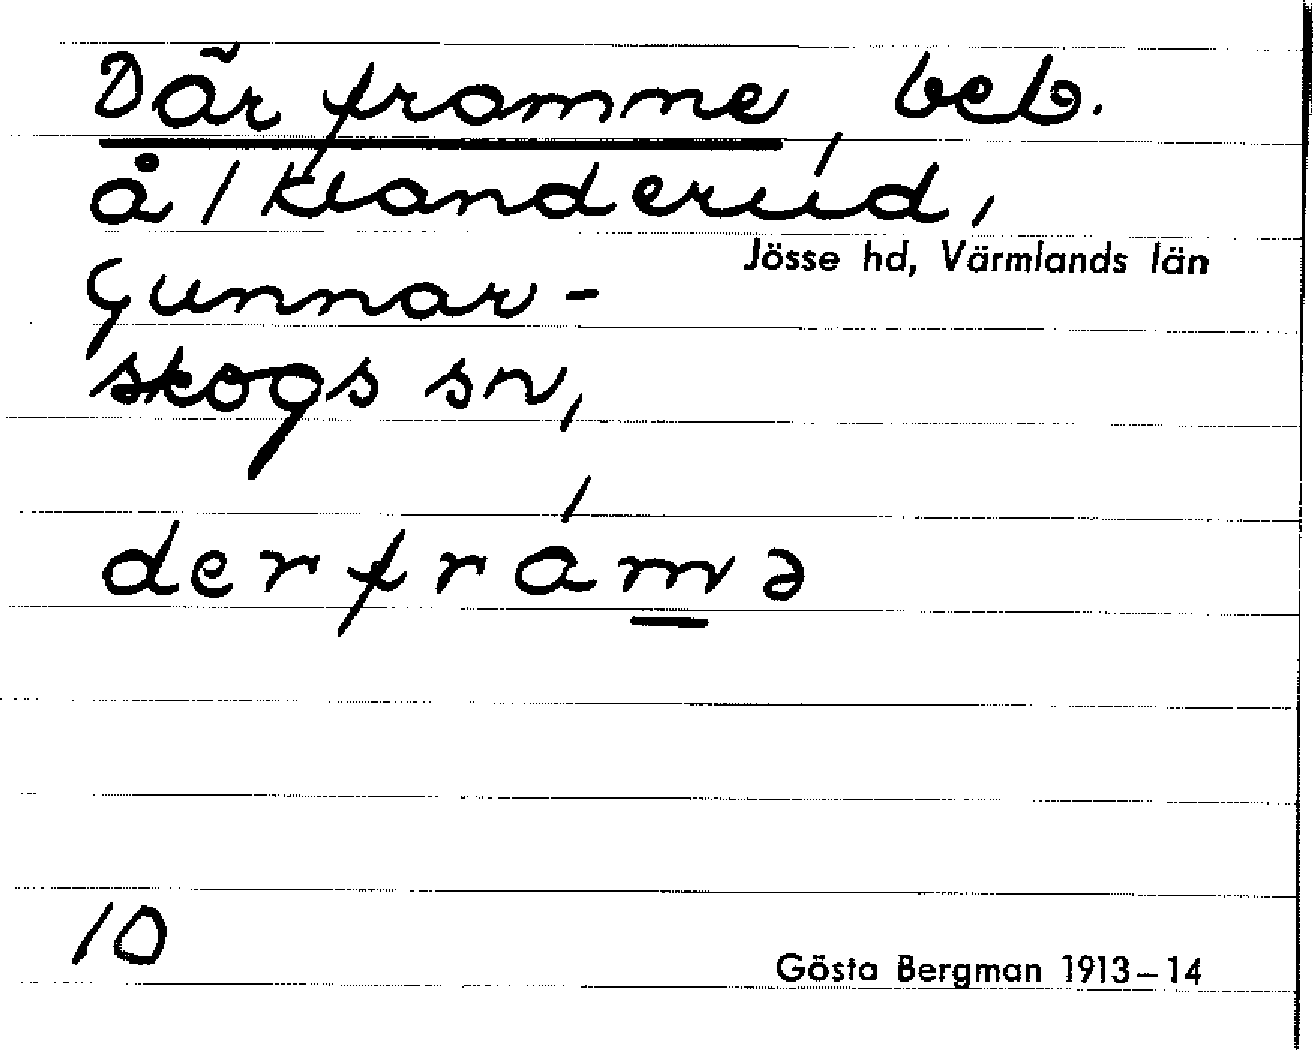 Där framme, beb.
å 1 Klanderud,
Jösse hd, Värmlands län
Gunnar-
skogs sn,
derfrámə
10
Gösta Bergman 1913–14